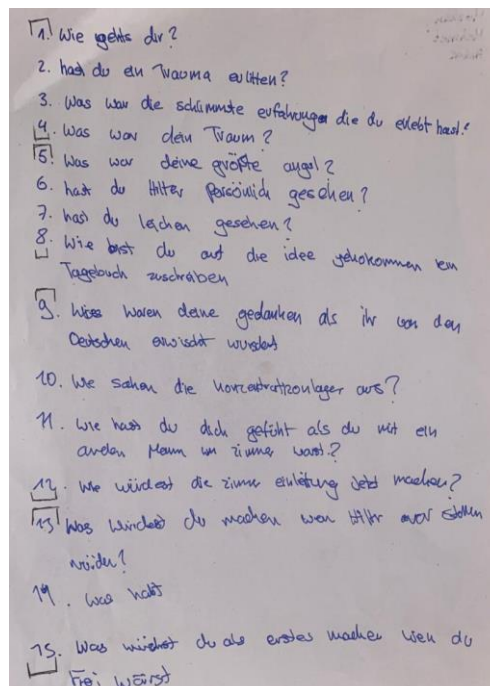 1. Wie gehts dir?
2. hast du ein Trauma erlitten?
3. Was war die schlimmste erfahrungen die du erlebt hast?
4. Was war dein Traum?
5. Was war deine größte angst?
6. hast du Hitler Persönlich gesehen?
7. hast du leichen gesehen?
8. Wie bist du auf die idee gekokommen ein
Tagebuch zuschreiben
9. waren deine gedanken als ihr von den
Deutschen erwischt wurdest
10. Wie sahen die aus?
11. Wie hast du dich gefühlt als du mit ein
andern Mann im zimmer warst?
12. Wie würdest die zimmer einleitung jetzt machen?
13 Was würdest du machen wen Hitler
14. was hast
15. Was würdest du als erstes machen wen du
frei wärst